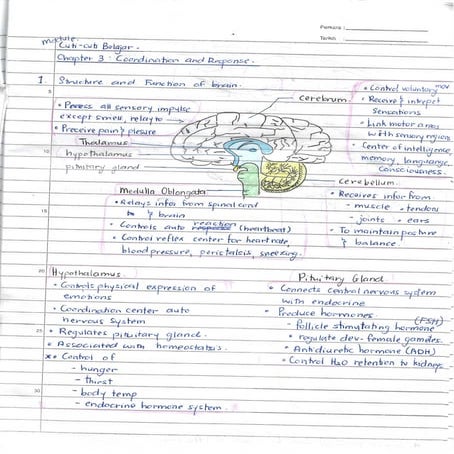 Perkara :
Tarikh :
module.
Cuti-cuti Belajar.
Chapter 3 : Coordination and Response.
1. Structure and Function of brain.
• Process all sensory impulse
except smell, relay to
• Perceive pain & plesure
Thalamus.
hypothalamus
pituitary gland
cerebrum
• Control voluntary mov
• Receive & intrepet
sensations
• Link motor area
with sensory region
• Center of intelligence,
memory, language,
consciousness.
Medulla Oblongata
• Relays infor from spinal cord
to & brain
• Controls auto response reaction (heartbeat)
• Control reflex center for heart rate,
blood pressure, peristalsis, sneezing.
Cerebellum.
• Receives infor from
- muscle - tendon
- joints - ears
• To maintain posture
& balance.
Hypothalamus.
• Controls physical expression of
emotions
• Coordination center auto
nervous system
• Regulates pituitary gland.
• Associated with homeostasis.
** Control of
- hunger
- thirst
- body temp
- endocrine hormone system.
Pituitary Gland
• Connects central nervous system
with endocrine
• Produce hormones.
- Follicle stimulating hormone (FSH)
• regulate dev. female gametes.
• Antidiuretic hormone (ADH)
• Control H2O retention to kidneys
10
15
20
25
30